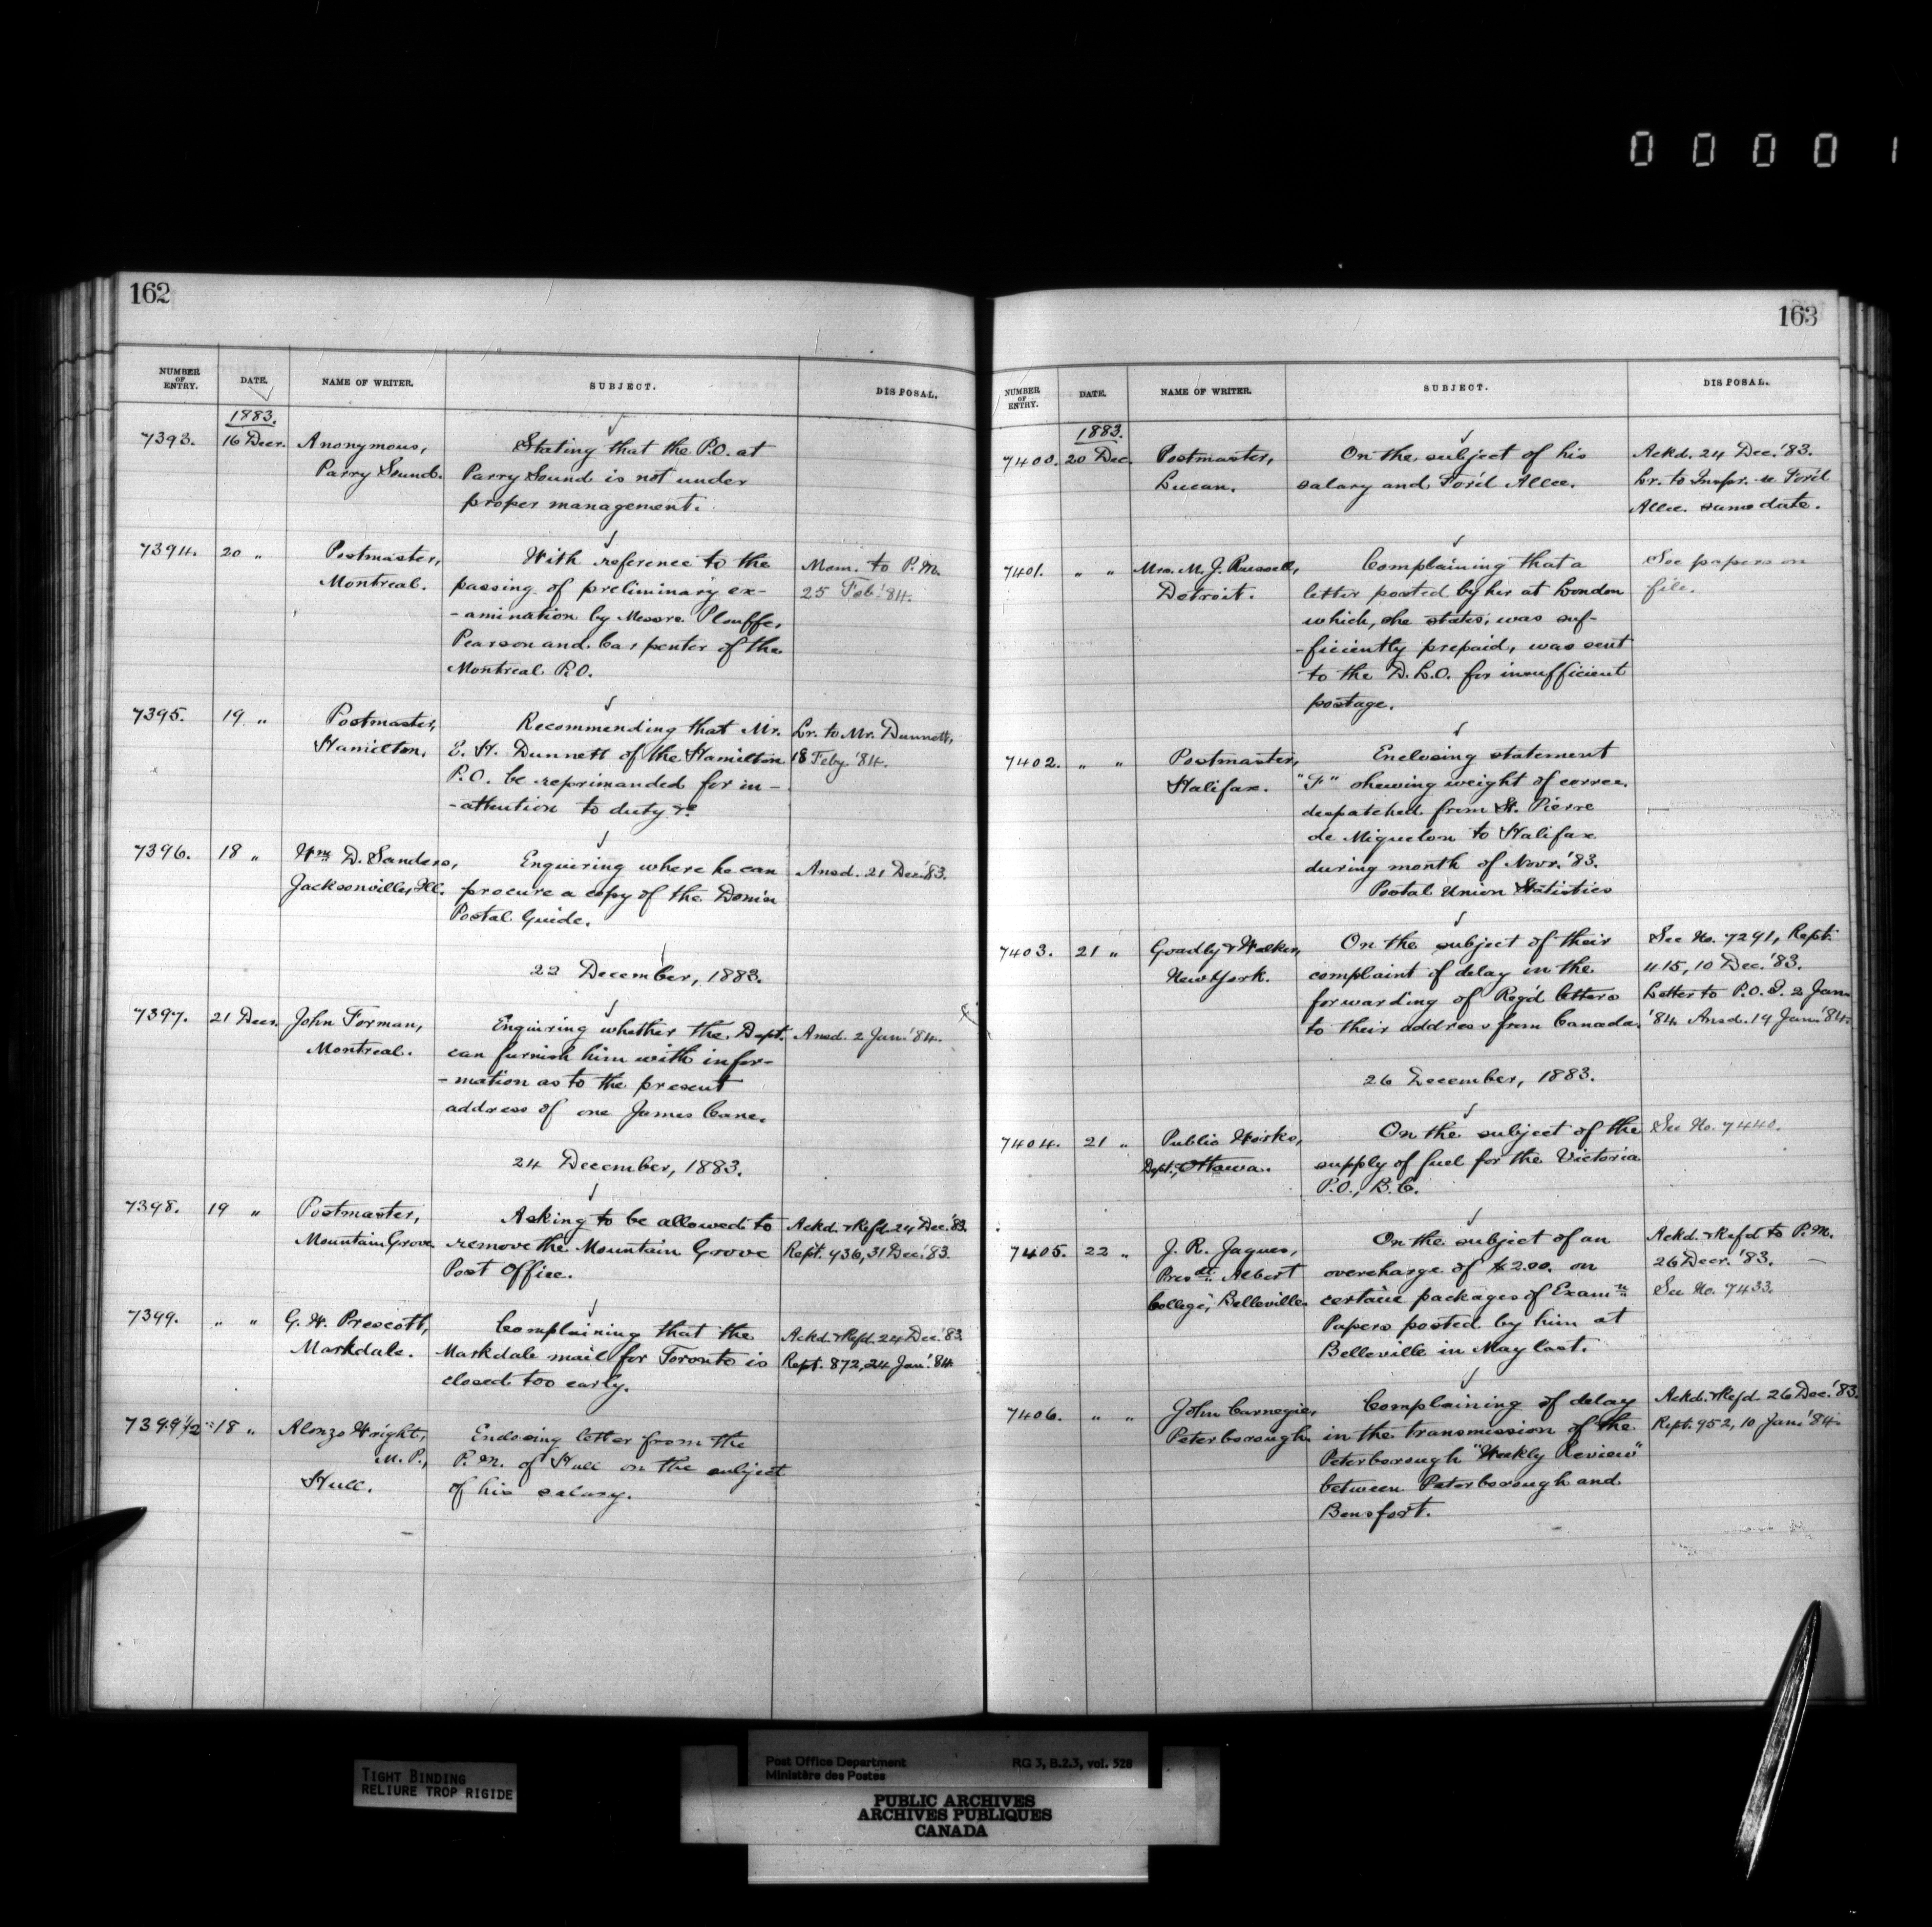 00001
162
NUMBER OF ENTRY. DATE. NAME OF WRITER. SUBJECT. DISPOSAL.
1883.
7393. 16 Decr. Anonymous, Stating that the P.O. at
Parry Sound. Parry Sound is not under
proper management.
7394. 20 " Postmaster, With reference to the Mem. to P.M.
Montreal. passing of preliminary ex- 25 Feb. '84.
-amination by Messrs. Plouffe,
Pearson and Carpenter of the
Montreal P.O.
7395. 19 " Postmaster, Recommending that Mr. Lr. to Mr. Dunnett,
Hamilton. E. H. Dunnett of the Hamilton 18 Feby. '84.
P.O. be reprimanded for in-
-attention to duty &c
7396. 18 " Wm. D. Sanders, Enquiring where he can Ansd. 21 Dec. '83.
Jacksonville, Ill. procure a copy of the Domin
Postal Guide.
22 December, 1883.
7397. 21 Decr. John Forman, Enquiring whether the Dept. Ansd. 2 Jan. '84.
Montreal. can furnish him with infor-
-mation as to the present
address of one James Cane.
24 December, 1883.
7398. 19 " Postmaster, Asking to be allowed to Ackd. & Refd. 24 Dec. '83.
Mountain Grove. remove the Mountain Grove Rept. 936, 31 Dec. '83.
Post Office.
7399. " " G. W. Prescott, Complaining that the Ackd. & Refd. 24 Dec. '83.
Markdale. Markdale mail for Toronto is Rept. 872, 24 Jan. '84.
closed too early.
7399 1/2 18 " Alonzo Wright, Enclosing letter from the
M.P., P.M. of Hull on the subject
Hull. of his salary.
163
NUMBER OF ENTRY. DATE. NAME OF WRITER. SUBJECT. DISPOSAL.
1883.
7400. 20 Dec. Postmaster, On the subject of his Ackd. 24 Dec. '83.
Lucan. salary and For'd Allce. Lr. to Inspr. re For'd
Allce. same date.
7401. " " Mrs. M. J. Russell, Complaining that a See papers on
Detroit. letter posted by her at London file.
which, she states, was suf-
-ficiently prepaid, was sent
to the D.L.O. for insufficient
postage.
7402. " " Postmaster, Enclosing statement
Halifax. "F" shewing weight of corres.
despatched from St. Pierre
de Miquelon to Halifax
during month of Novr. '83.
Postal Union Statistics
7403. 21 " Goadly & Walker, On the subject of their See No. 7291, Rept.
New York. complaint of delay in the 415, 10 Dec. '83.
forwarding of Reg'd letters Letter to P.O.I. 2 Jan.
to their address from Canada. '84. Ansd. 19 Jan. '84.
26 December, 1883.
7404. 21 " Public Works, On the subject of the See No. 7440.
Dept., Ottawa. supply of fuel for the Victoria
P.O., B.C.
7405. 22 " J. R. Jaques, On the subject of an Ackd. & Refd to P.M.
Presdt. Albert overcharge of $2.00. on 26 Decr. '83.
College, Belleville. certain packages of Examn See No. 7433.
Papers posted by him at
Belleville in May last.
7406. " " John Carnegie, Complaining of delay Ackd. & Refd. 26 Dec. '83.
Peterborough. in the transmission of the Rept. 952, 10 Jan. '84.
Peterborough "Weekly Review"
between Peterborough and
Bensfort.
TIGHT BINDING
RELIURE TROP RIGIDE
Post Office Department RG 3, B.2.3, vol. 528
Ministère des Postes
PUBLIC ARCHIVES
ARCHIVES PUBLIQUES
CANADA